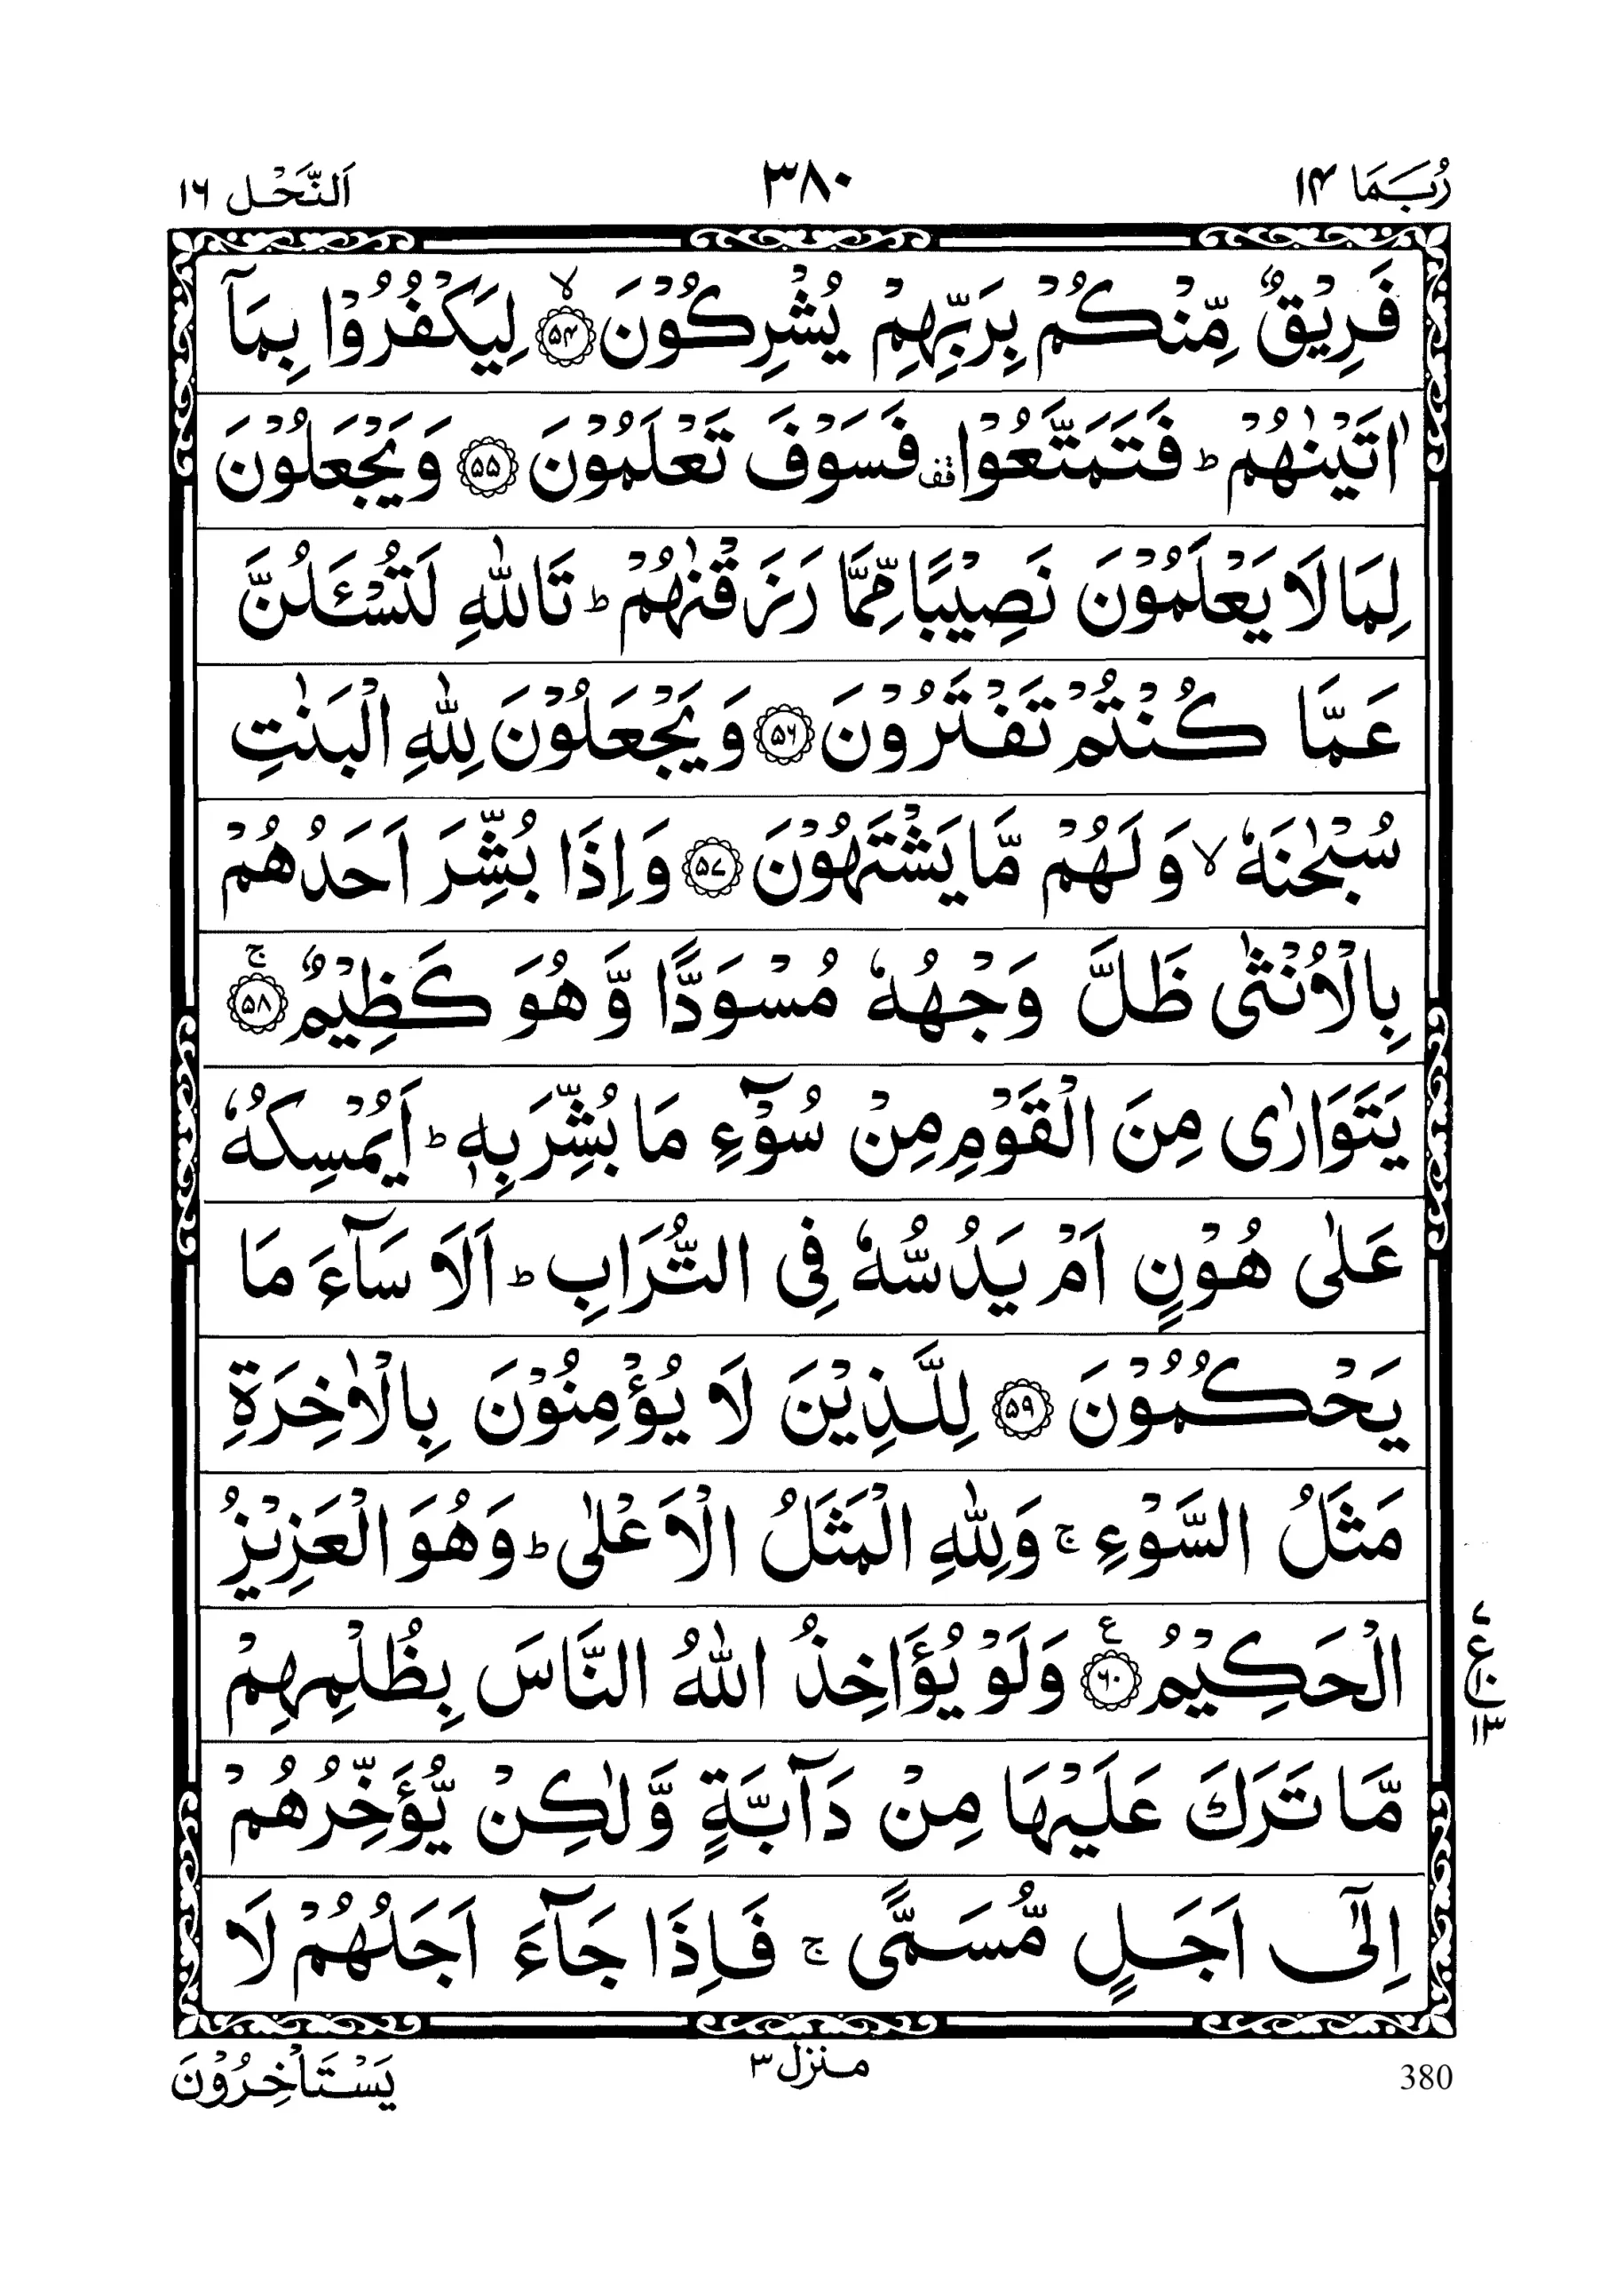 رُبَمَا ۱۴ ۳۸۰ اَلنَّحْل ۱۶
فَرِیْقٌ مِّنْكُمْ بِرَبِّهِمْ یُشْرِكُوْنَ ۙ﴿۵۴﴾ لِیَكْفُرُوْا بِمَاۤ
اٰتَیْنٰهُمْ ؕ فَتَمَتَّعُوْا ۥ قف فَسَوْفَ تَعْلَمُوْنَ ﴿۵۵﴾ وَ یَجْعَلُوْنَ
لِمَا لَا یَعْلَمُوْنَ نَصِیْبًا مِّمَّا رَزَقْنٰهُمْ ؕ تَاللّٰهِ لَتُسْـَٔلُنَّ
عَمَّا كُنْتُمْ تَفْتَرُوْنَ ﴿۵۶﴾ وَ یَجْعَلُوْنَ لِلّٰهِ الْبَنٰتِ
سُبْحٰنَهٗ ۙ وَ لَهُمْ مَّا یَشْتَهُوْنَ ﴿۵۷﴾ وَ اِذَا بُشِّرَ اَحَدُهُمْ
بِالْاُنْثٰی ظَلَّ وَجْهُهٗ مُسْوَدًّا وَّ هُوَ كَظِیْمٌ ۚ﴿۵۸﴾
یَتَوَارٰی مِنَ الْقَوْمِ مِنْ سُوْٓءِ مَا بُشِّرَ بِهٖ ؕ اَیُمْسِكُهٗ
عَلٰی هُوْنٍ اَمْ یَدُسُّهٗ فِی التُّرَابِ ؕ اَلَا سَآءَ مَا
یَحْكُمُوْنَ ﴿۵۹﴾ لِلَّذِیْنَ لَا یُؤْمِنُوْنَ بِالْاٰخِرَةِ
مَثَلُ السَّوْءِ ۚ وَ لِلّٰهِ الْمَثَلُ الْاَعْلٰی ؕ وَ هُوَ الْعَزِیْزُ
الْحَكِیْمُ ﴿۶۰﴾ ع وَ لَوْ یُؤَاخِذُ اللّٰهُ النَّاسَ بِظُلْمِهِمْ
۷ ع ۱۰ ۱۳
مَّا تَرَكَ عَلَیْهَا مِنْ دَآبَّةٍ وَّ لٰكِنْ یُّؤَخِّرُهُمْ
اِلٰۤی اَجَلٍ مُّسَمًّی ۚ فَاِذَا جَآءَ اَجَلُهُمْ لَا
یَسْتَاْخِرُوْنَ منزل ۳ 380